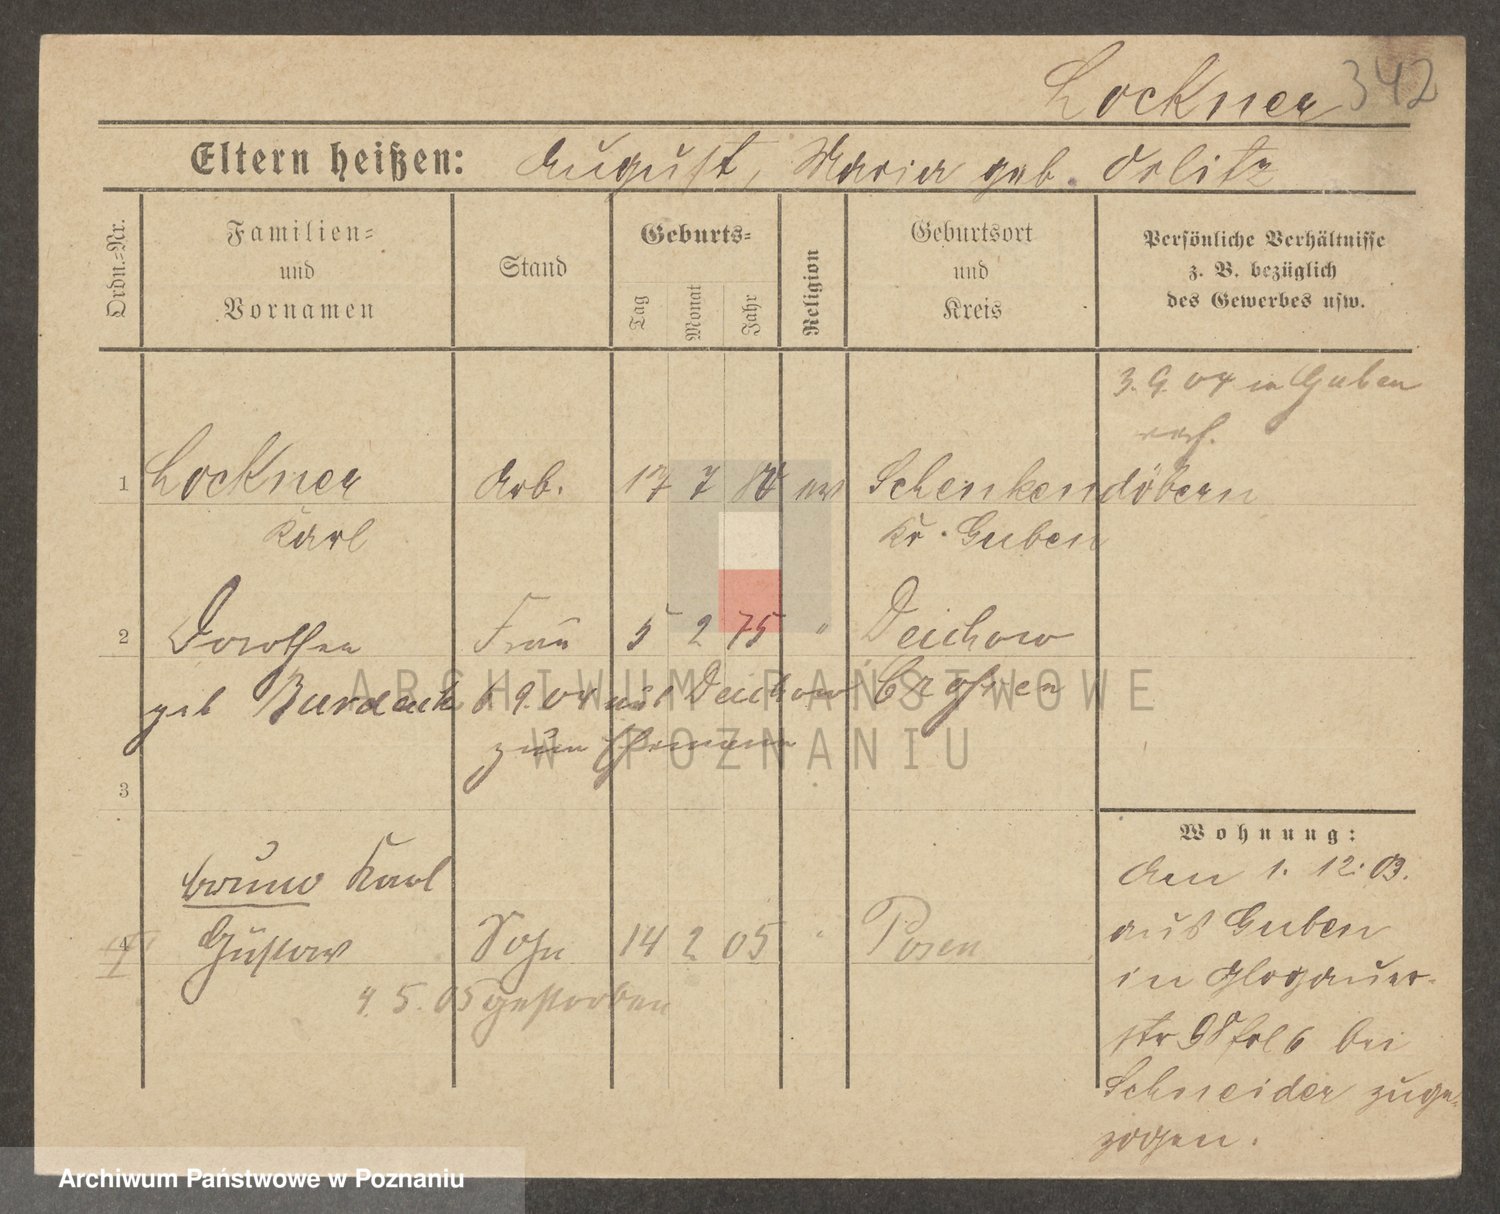 Lockner 342
Eltern heißen: August, Maria geb. Orlitz
Ordn.-Nr.
Familien-
und
Vornamen
Stand
Geburts-
Tag
Monat
Jahr
Religion
Geburtsort
und
Kreis
Persönliche Verhältnisse
z. B. bezüglich
des Gewerbes usw.
3. 9. 04 in Guben
verh.
1 Lockner Arb. 17 7 ev Schenkendöbern
Karl Kr. Guben
2 Dorothea Frau 5 2 75 " Deichow
geb Burdack 6. 9. 04 aus Deichow Crossen
zum Ehemann
3
Bruno Karl
4 Gustav Sohn 14 2 05 " Posen
9. 5. 05 gestorben
Wohnung:
Am 1. 12. 03.
aus Guben
in Glogauer-
str 98 bei
Schneider zuge-
zogen.
ARCHIWUM PAŃSTWOWE
W POZNANIU
Archiwum Państwowe w Poznaniu